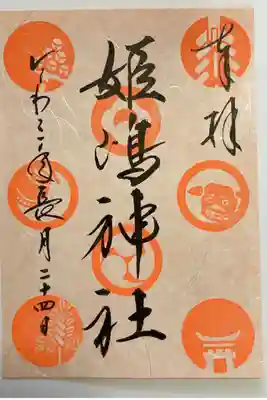 奉拝
姫嶋神社
令和三年長月二十四日